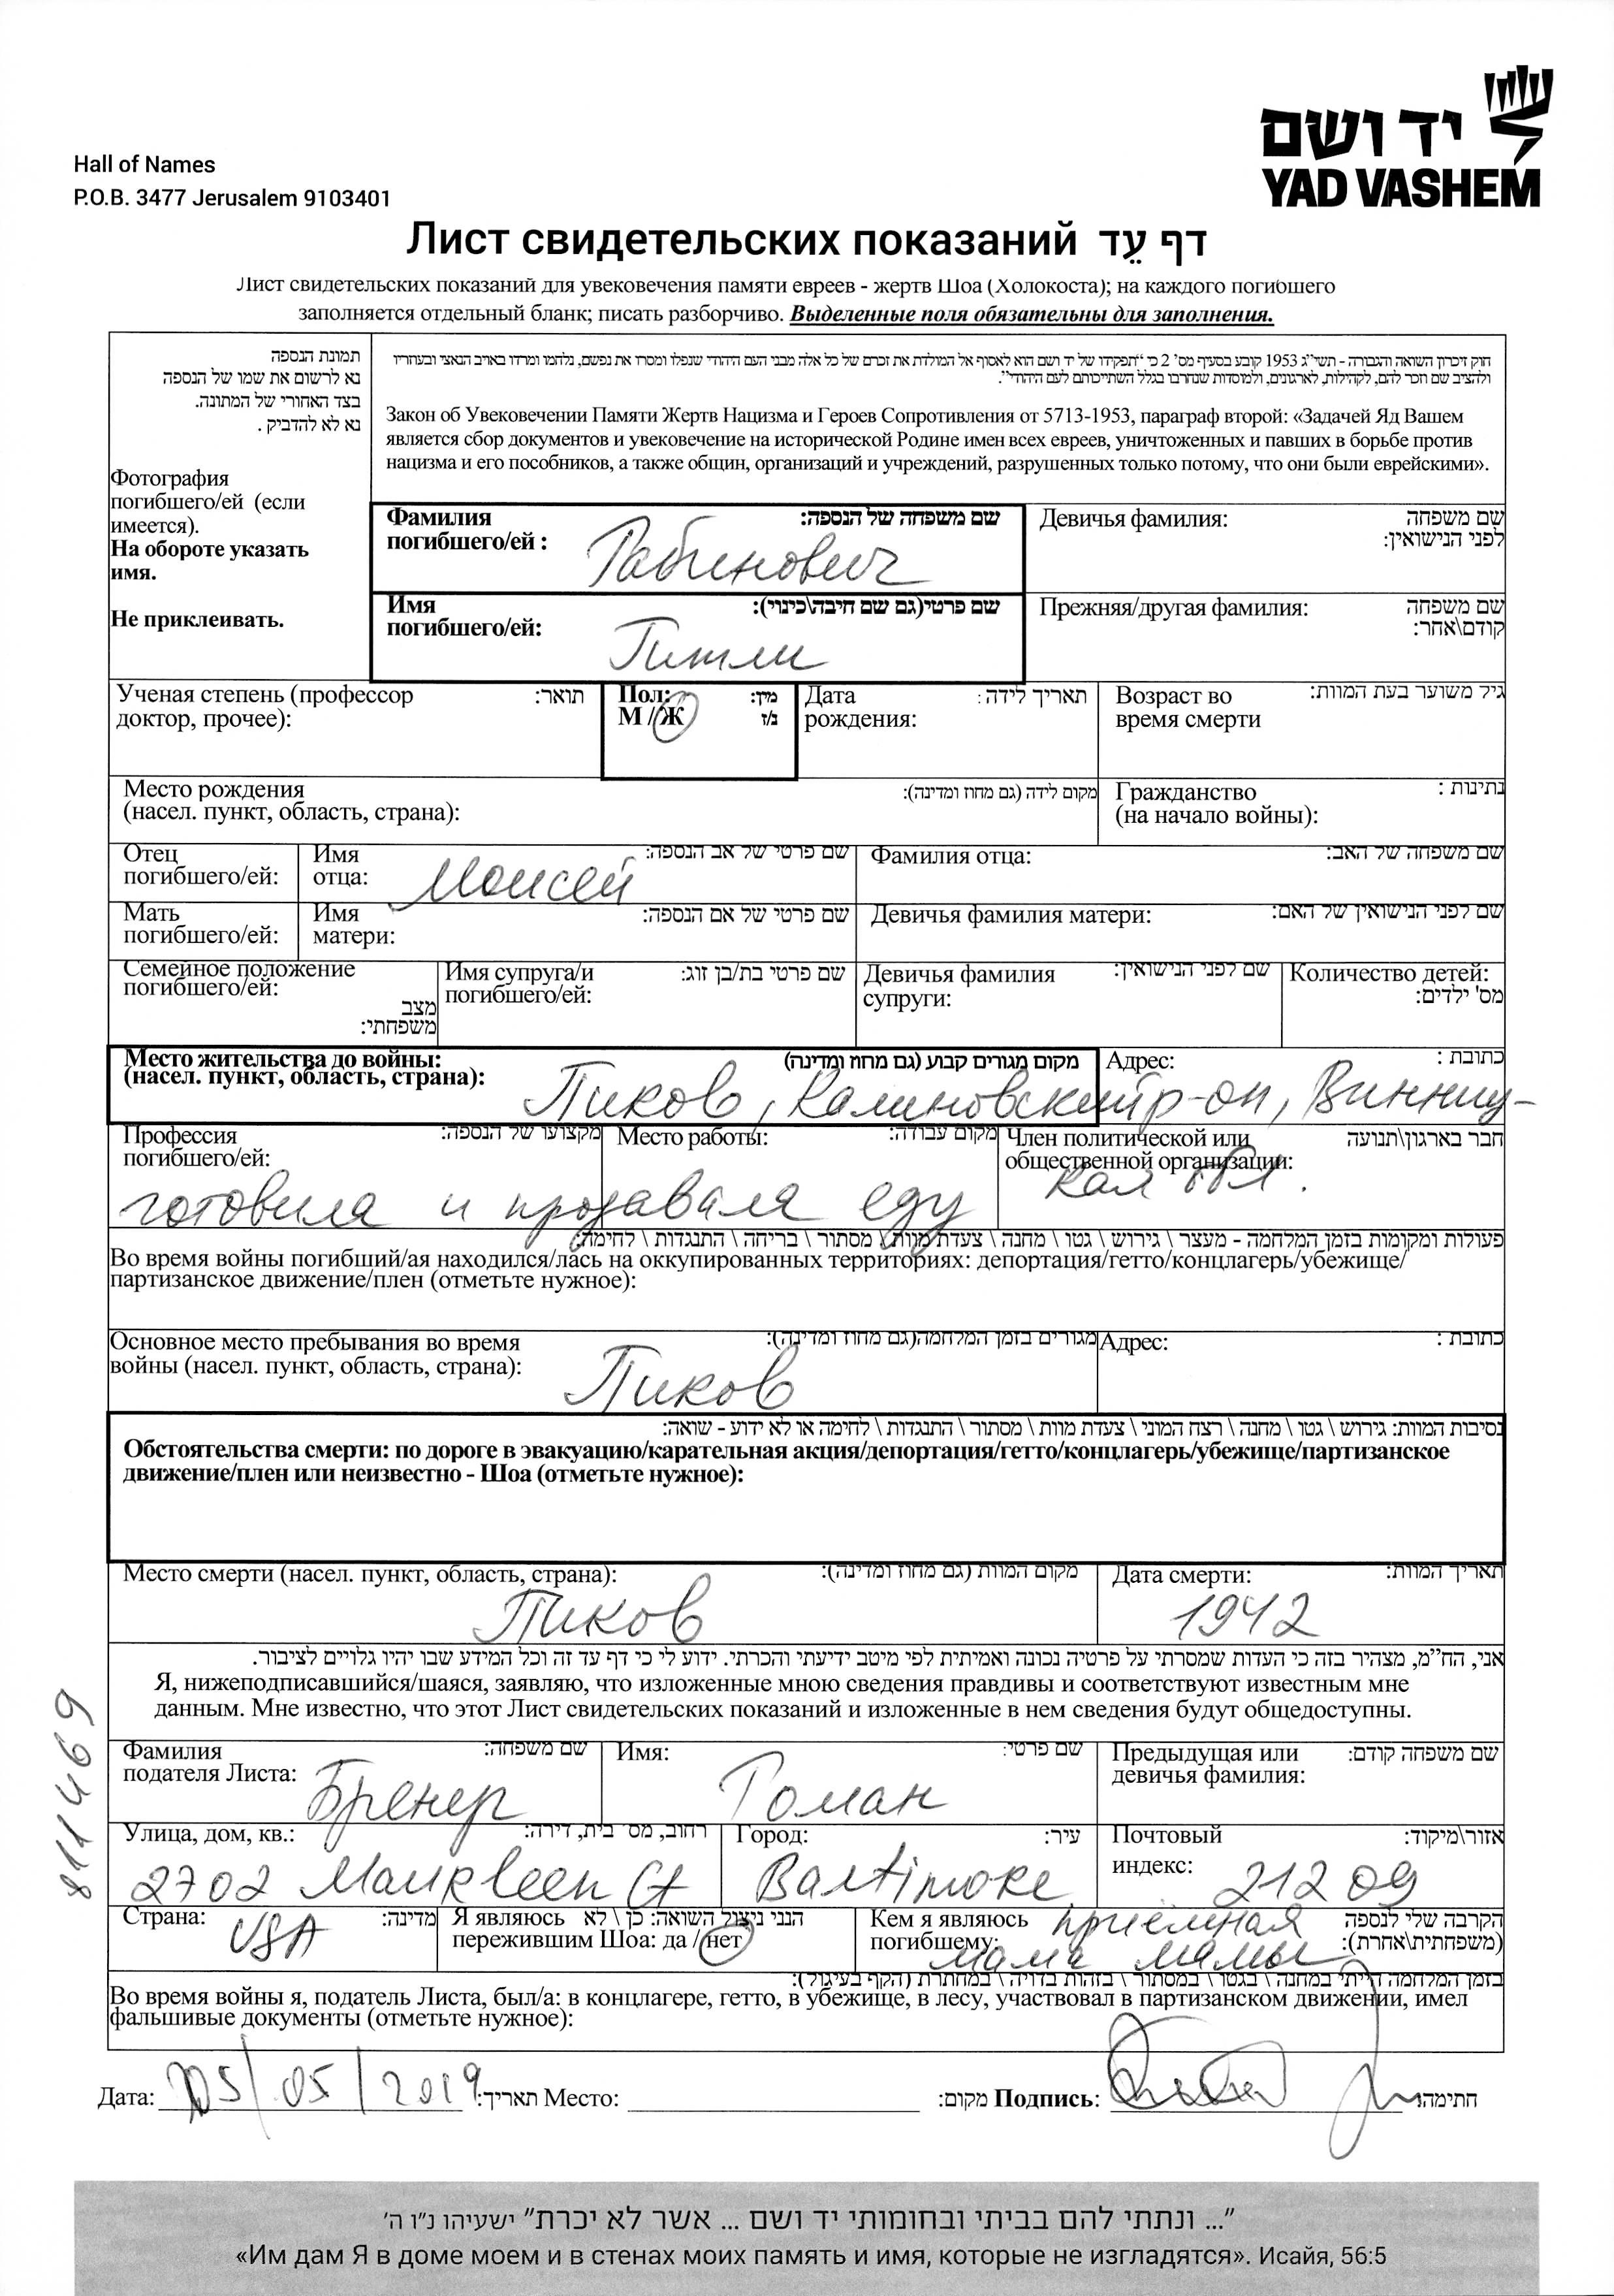 יד ושם
YAD VASHEM
Hall of Names
P.O.B. 3477 Jerusalem 9103401
Лист свидетельских показаний דף עֵד
Лист свидетельских показаний для увековечения памяти евреев - жертв Шоа (Холокоста); на каждого погибшего
заполняется отдельный бланк; писать разборчиво. Выделенные поля обязательны для заполнения.
תמונת הנספה
נא לרשום את שמו של הנספה
בצד האחורי של המתונה.
נא לא להדביק .
Фотография
погибшего/ей (если
имеется).
На обороте указать
имя.
Не приклеивать.
חוק זיכרון השואה והגבורה - תשי״ג 1953 קובע בסעיף מס׳ 2 כי ״תפקידו של יד ושם הוא לאסוף אל המולדת את זכרם של כל אלה מבני העם היהודי שנפלו ומסרו את נפשם, נלחמו ומרדו באויב הנאצי ובעוזריו
ולהציב שם וזכר להם, לקהילות, לארגונים, ולמוסדות שנחרבו בגלל השתייכותם לעם היהודי״.
Закон об Увековечении Памяти Жертв Нацизма и Героев Сопротивления от 5713-1953, параграф второй: «Задачей Яд Вашем
является сбор документов и увековечение на исторической Родине имен всех евреев, уничтоженных и павших в борьбе против
нацизма и его пособников, а также общин, организаций и учреждений, разрушенных только потому, что они были еврейскими».
Фамилия שם משפחה של הנספה:
погибшего/ей : Рабинович
Девичья фамилия: שם משפחה
לפני הנישואין:
Имя שם פרטי(גם שם חיבה\כינוי):
погибшего/ей: Гитли
Прежняя/другая фамилия: שם משפחה
קודם\אחר:
Ученая степень (профессор תואר:
доктор, прочее):
Пол: מין:
М /Ж ז/נ
Дата תאריך לידה :
рождения:
Возраст во גיל משוער בעת המוות:
время смерти
Место рождения מקום לידה (גם מחוז ומדינה):
(насел. пункт, область, страна):
Гражданство נתינות :
(на начало войны):
Отец
погибшего/ей:
Имя שם פרטי של אב הנספה:
отца: Моисей
Фамилия отца: שם משפחה של האב:
Мать
погибшего/ей:
Имя שם פרטי של אם הנספה:
матери:
Девичья фамилия матери: שם לפני הנישואין של האם:
Семейное положение
погибшего/ей:
מצב
משפחתי:
Имя супруга/и שם פרטי בת/בן זוג:
погибшего/ей:
Девичья фамилия שם לפני הנישואין:
супруги:
Количество детей:
מס' ילדים:
Место жительства до войны: מקום מגורים קבוע (גם מחוז ומדינה)
(насел. пункт, область, страна):
Адрес: כתובת :
Пиков, Калиновский р-он, Винниц-
Профессия מקצועו של הנספה:
погибшего/ей:
Место работы: מקום עבודה:
Член политической или חבר בארגון\תנועה
общественной организации:
кая обл.
готовила и продавала еду
פעולות ומקומות בזמן המלחמה - מעצר \ גירוש \ גטו \ מחנה \ צעדת מוות \ מסתור \ בריחה \ התנגדות \ לחימה:
Во время войны погибший/ая находился/лась на оккупированных территориях: депортация/гетто/концлагерь/убежище/
партизанское движение/плен (отметьте нужное):
Основное место пребывания во время מגורים בזמן המלחמה(גם מחוז ומדינה):
войны (насел. пункт, область, страна): Пиков
Адрес: כתובת :
נסיבות המוות: גירוש \ גטו \ מחנה \ רצח המוני \ צעדת מוות \ מסתור \ התנגדות \ לחימה או לא ידוע - שואה:
Обстоятельства смерти: по дороге в эвакуацию/карательная акция/депортация/гетто/концлагерь/убежище/партизанское
движение/плен или неизвестно - Шоа (отметьте нужное):
Место смерти (насел. пункт, область, страна): מקום המוות (גם מחוז ומדינה):
Пиков
Дата смерти: תאריך המוות:
1942
אני, הח״מ, מצהיר בזה כי העדות שמסרתי על פרטיה נכונה ואמיתית לפי מיטב ידיעתי והכרתי. ידוע לי כי דף עד זה וכל המידע שבו יהיו גלויים לציבור.
Я, нижеподписавшийся/шаяся, заявляю, что изложенные мною сведения правдивы и соответствуют известным мне
данным. Мне известно, что этот Лист свидетельских показаний и изложенные в нем сведения будут общедоступны.
8111469
Фамилия שם משפחה:
подателя Листа: Бренер
Имя: שם פרטי:
Роман
Предыдущая или שם משפחה קודם:
девичья фамилия:
Улица, дом, кв.: רחוב, מס׳ בית, דירה:
2702 Ct
Город: עיר:
Baltimore
Почтовый אזור\מיקוד:
индекс: 21209
Страна: USA מדינה:
Я являюсь הנני ניצול השואה: כן \ לא
пережившим Шоа: да / нет
Кем я являюсь приёмная הקרבה שלי לנספה
погибшему: мама мамы (משפחתית\אחרת):
בזמן המלחמה הייתי במחנה \ בגטו \ במסתור \ בזהות בדויה \ במחתרת (הקף בעיגול):
Во время войны я, податель Листа, был/а: в концлагере, гетто, в убежище, в лесу, участвовал в партизанском движении, имел
фальшивые документы (отметьте нужное):
Дата: 05/05/2019 תאריך: Место: מקום: Подпись: חתימה:
״... ונתתי להם בביתי ובחומותי יד ושם ... אשר לא יכרת״ ישעיהו נ״ו ה׳
«Им дам Я в доме моем и в стенах моих память и имя, которые не изгладятся». Исайя, 56:5